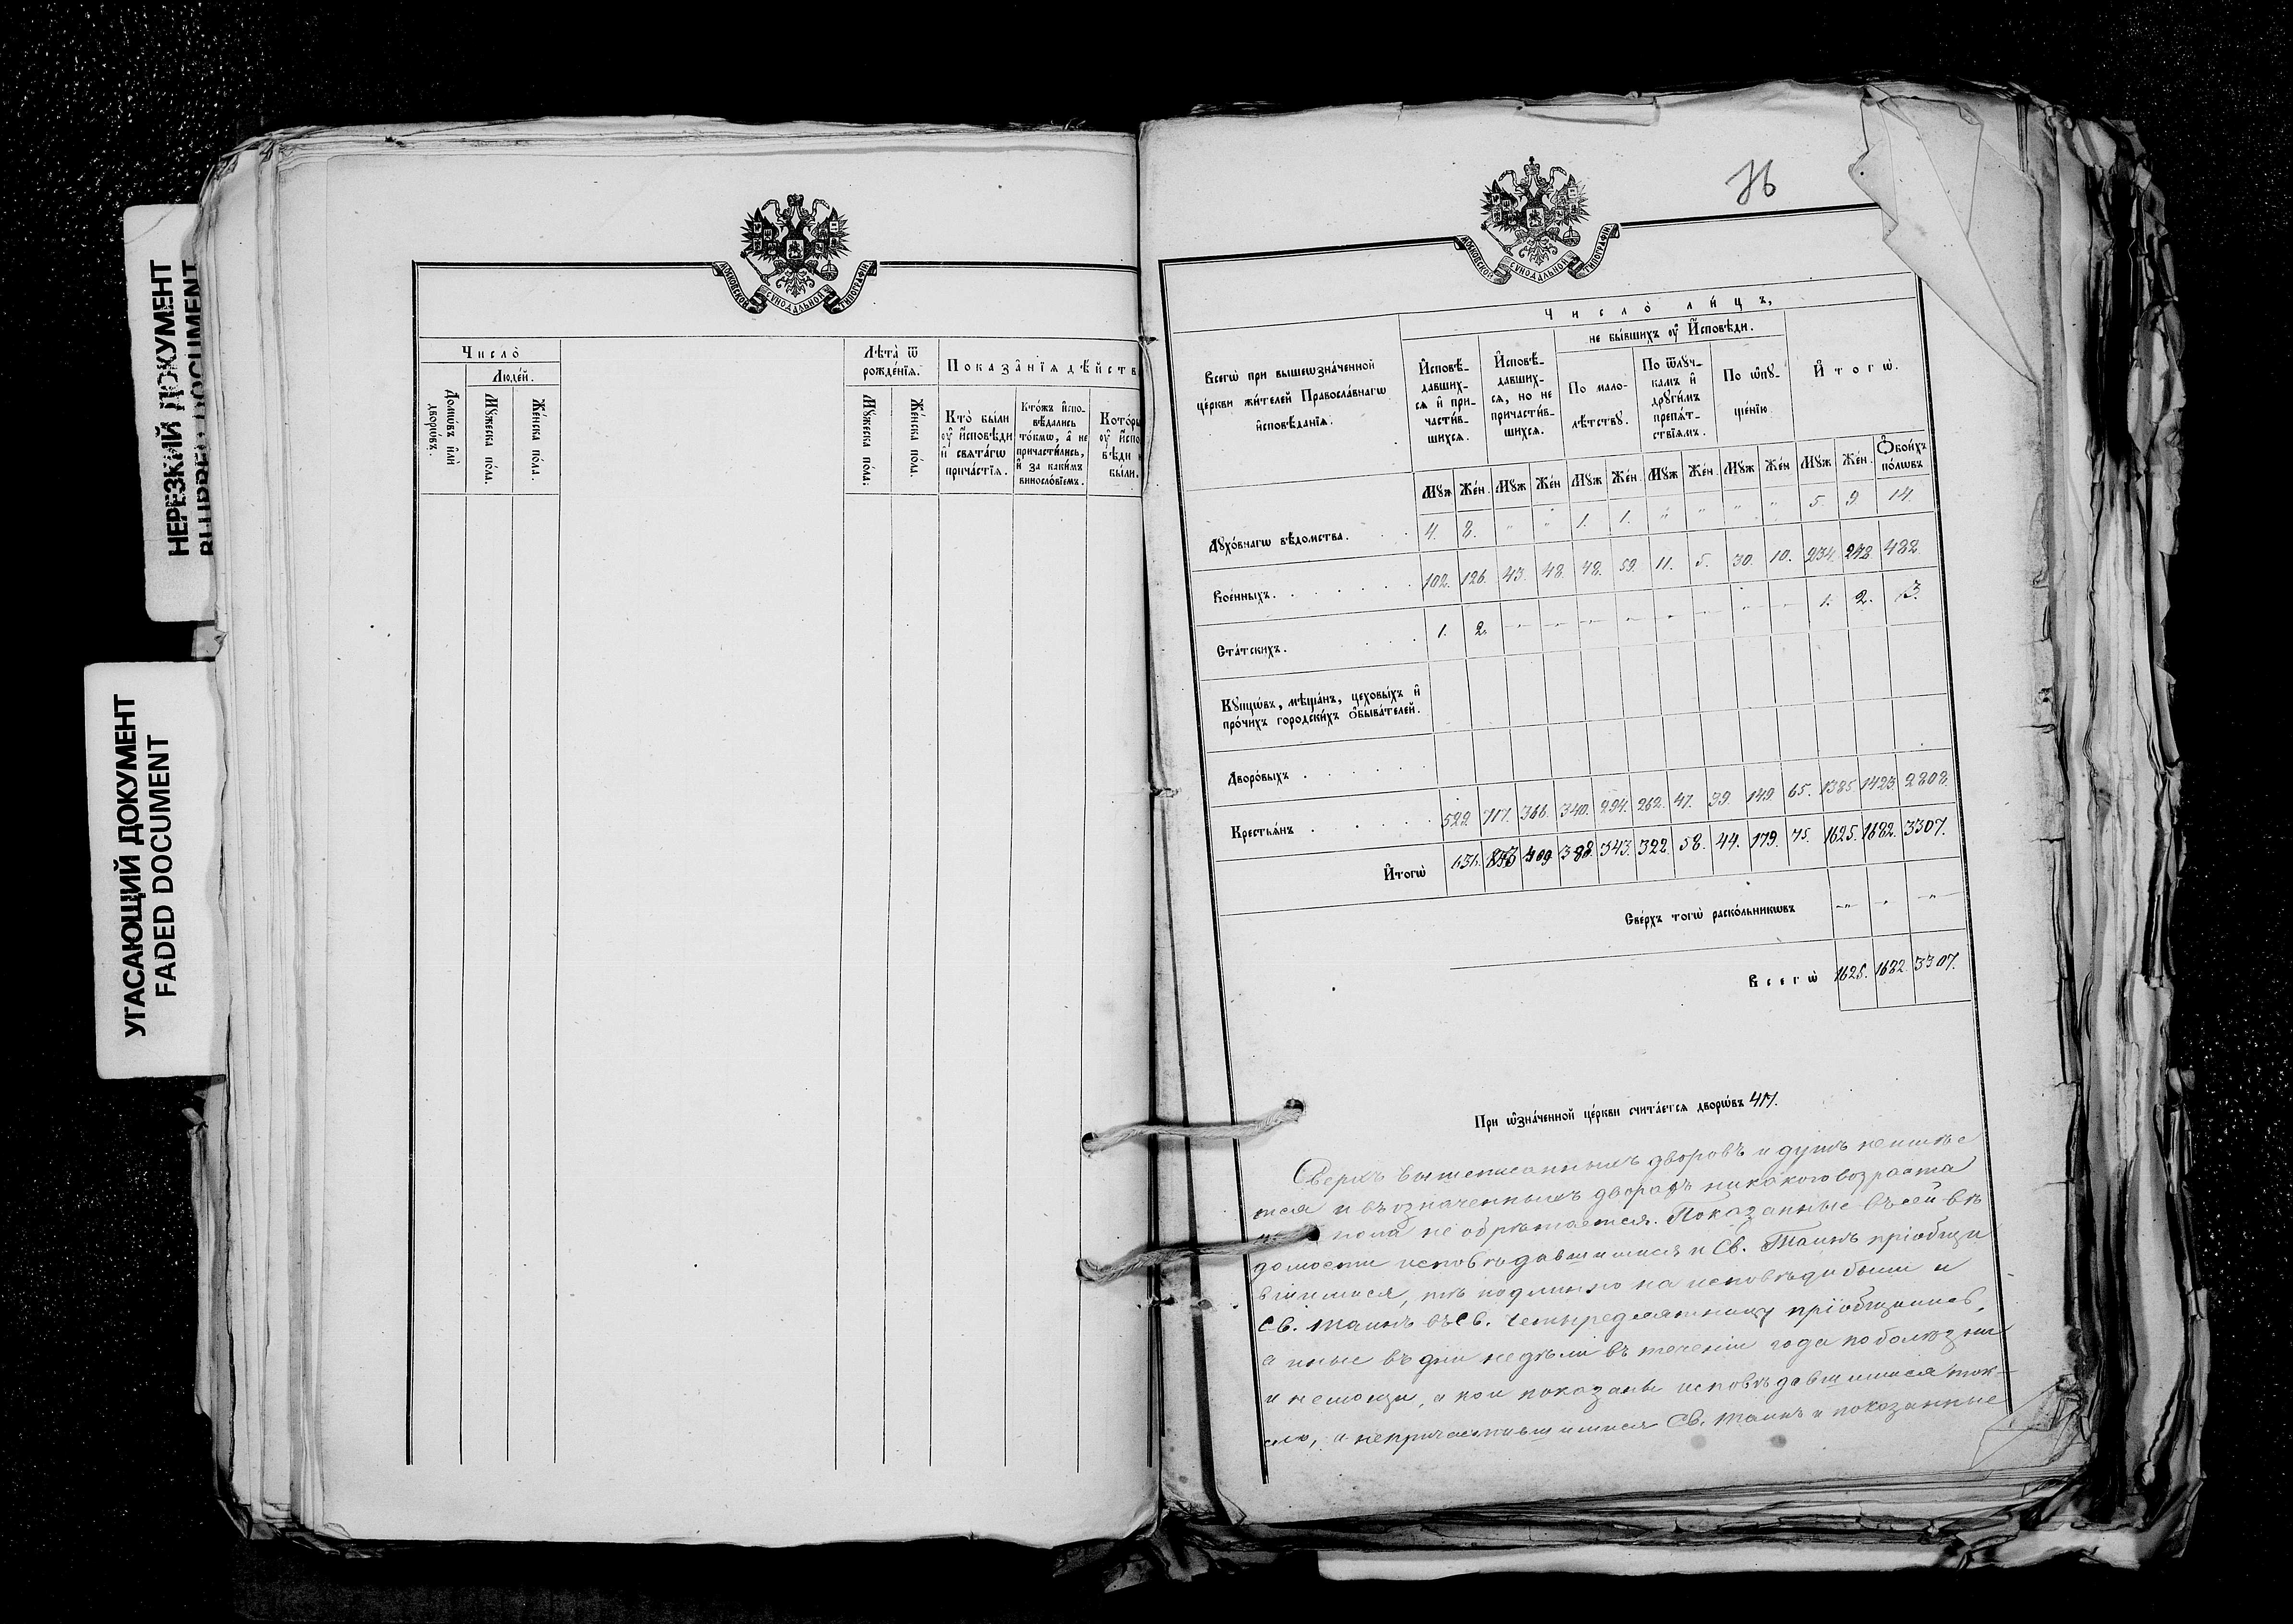 НЕРЕЗКИЙ ДОКУМЕНТ
BLURRED DOCUMENT
УГАСАЮЩИЙ ДОКУМЕНТ
FADED DOCUMENT
МОСКОВСКОЙ СѴНОДАЛЬНОЙ ТИПОГРАФІИ
Число̀
Люде́й.
Домѡ́въ и҆лѝ дворѡ́въ.
Мꙋ́жеска по́ла.
Же́нска по́ла.
Лѣта̀ ѿ рожде́нїѧ.
Мꙋ́жеска по́ла.
Же́нска по́ла.
Показа̂нїѧ дѣ́йств
Кто̀ бы́ли оу҆ и҆сповѣди и҆ свѧта́гѡ прича́стїѧ.
Кто́жъ и҆спо-
вѣдались
то́кмѡ, а҆ не
причасти́лись,
и҆ за каки́мъ
винословїемъ.
Кото́ры
оу҆ и҆спо
вѣди
бы́ли.
76
МОСКОВСКОЙ СѴНОДАЛЬНОЙ ТИПОГРАФІИ
Число̀ ли́цъ,
не бы́вшихъ оу҆ И҆сповѣди.
Всегѡ̀ при вышеѡзна́ченной
це́ркви жи́телей Правосла́внагѡ
и҆сповѣ́данїѧ.
И҆сповѣ-
давших-
сѧ и҆ при-
части́в-
шихсѧ.
И҆сповѣ-
давших-
сѧ, но не
причасти́в-
шихсѧ.
По мало-
лѣтствꙋ.
По ѿлꙋч-
камъ и҆
дрꙋги́мъ
препѧ́т-
ствїѧмъ.
По ѡ҆пꙋ-
ще́нїю
И҆тогѡ̀.
Мꙋж Же́н. Мꙋж Же́н Мꙋж Же́н. Мꙋж Же́н. Мꙋж Же́н Мꙋж Же́н. Ѻ҆бои́хъ по́лѡвъ
Дꙋхо́внагѡ вѣ́домства. 4. 8. " " 1. 1. " " " " 5. 9. 14.
Вое́нныхъ. 102. 126. 43. 48. 48. 59. 11. 5. 30. 10. 234. 248. 482.
Ста́тскихъ. 1. 2. " " " " " " " " 1. 2. 3.
Кꙋпцѡ́въ, мѣща́нъ, цеховы́хъ и҆
про́чихъ городски́хъ ѻ҆быва́телей.
Дворо́выхъ
Крестьѧ́нъ 529 717. 366. 340. 294. 262. 47. 39. 149. 65. 1385. 1423. 2808.
И҆тогѡ̀ 636. 853 409 388. 343. 322. 58. 44. 179. 75. 1625. 1682. 3307.
Све́рхъ тогѡ̀ раско́льникѡвъ " " "
Всегѡ̀ 1625. 1682. 3307.
При ѡ҆зна́ченной це́ркви счита́етсѧ дворѡ́въ 417.
Сверхъ вышеписанныхъ дворовъ и душъ не имѣе
тся и въ означенныхъ дворахъ никакого возраста
пола не обрѣтается. Показанные въ сей вѣ
домости исповѣдавшимися и Св. Таинъ пріобщи
вшимися, тѣ подлинно на исповѣди были и
Св. Таинъ въ Св. Четыредесятницу пріобщились,
а иные въ дни недѣли въ теченіи года по болѣзни
и немощи, а кои показаны исповѣдавшимися ток-
мо, и непричастившимися Св. Таинъ и показанные